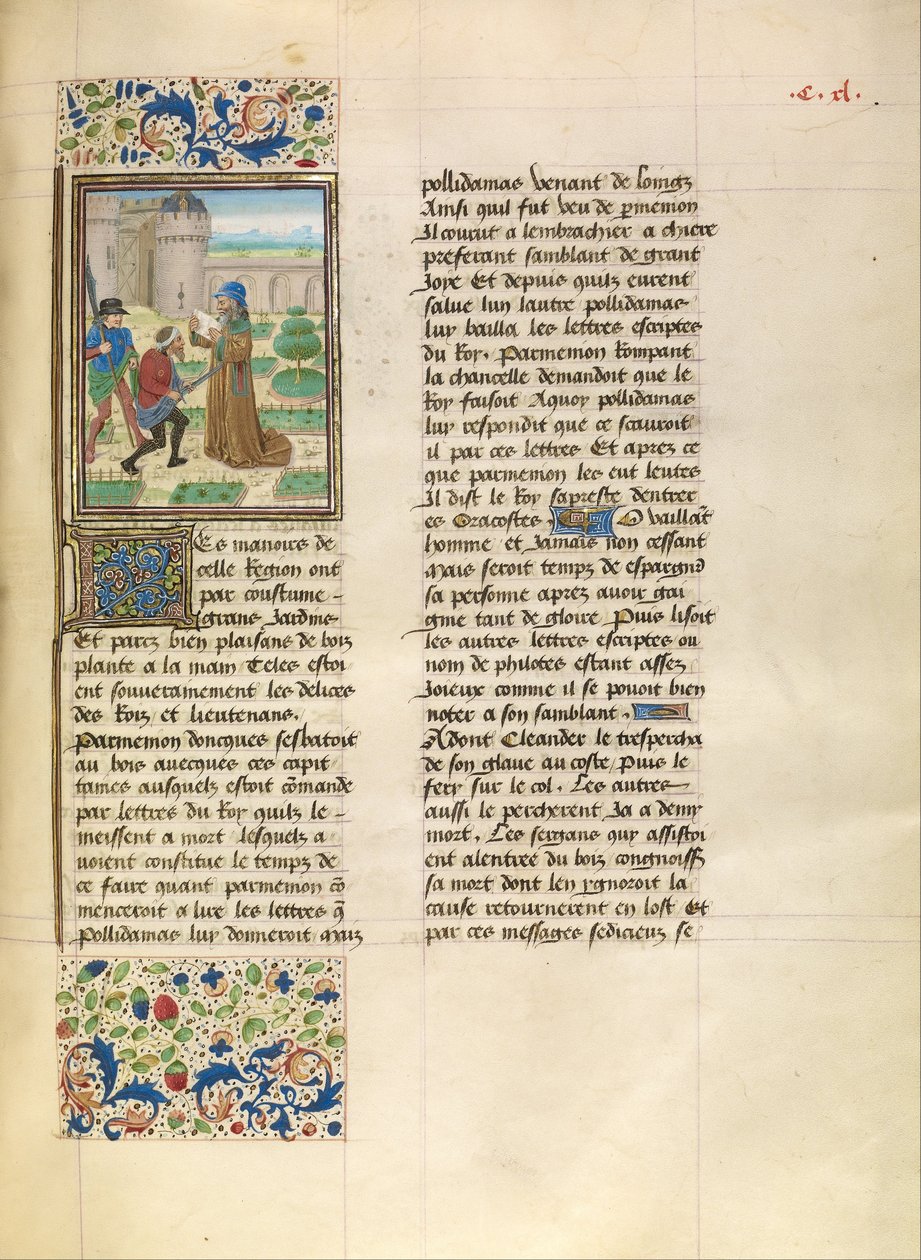 .C. xl.
Les manoirs de
celle Region ont
par coustume -
grans Jardins
Et parcz bien plaisans de boiz
plante a la main Teles estoi
ent souverainement les delices
des Roiz et lieutenans.
Parmenion doncques sesbatoit
au bois avecques ces capit
taines ausquelz estoit cōmande
par lettres du Roy quilz le -
meissent a mort lesquelz a
voient constitue le tempz de
ce faire quant parmenion cō
menceroit a lire les lettres q̄
Pollidamas luy donneroit Maiz
pollidamas venant de loingz
Ainsi quil fut veu de p̄menion
Il courut a lembrachier a chiere
preferant samblant de grant
Joye Et depuis quilz eurent
salue lun lautre pollidamas
luy bailla les lettres escriptes
du Roy. Parmenion Rompant
la chancelle demandoit que le
Roy faisoit Aquoy pollidamas
luy respondit que ce scauroit
il par ces lettres Et aprez ce
que parmenion les eut leutes
Il dist le Roy sapreste dentrer
es Oracostes. O vaillāt
homme et Jamais non cessant
Mais seroit tempz de espargn
sa personne aprez avoir gai
gnie tant de gloire Puis lisoit
les autres lettres escriptes ou
nom de philotes estant assez
Joieux comme il se povoit bien
noter a son samblant.
Adont Cleander le trespercha
de son glave au coste, Puis le
fery sur le col. Les autres
aussi le percherent Ja a demy
mort. Les sergans quy assistoi
ent alentree du boiz congnoiss
sa mort dont len ygnoroit la
cause retournerent en lost Et
par ces messages sedicieux se